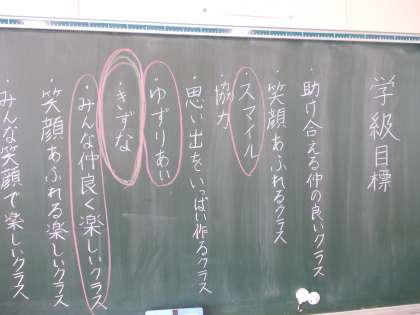 学級目標
・助け合える仲の良いクラス
・笑顔あふれるクラス
・スマイル
・協力
・思い出をいっぱい作るクラス
・ゆずりあい
・きずな
・みんな仲良く楽しいクラス
・笑顔あふれる楽しいクラス
・みんな笑顔で楽しいクラス